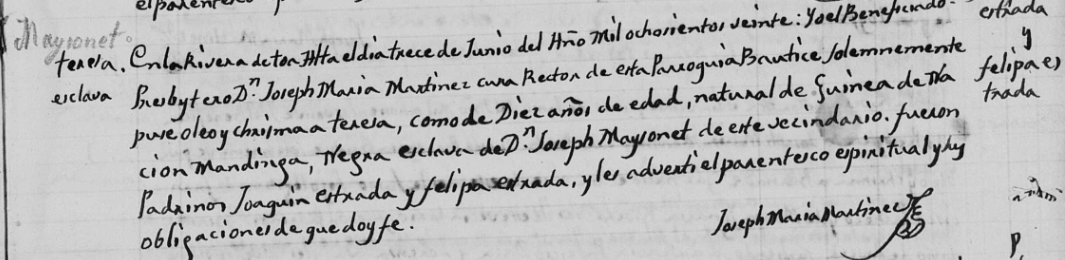 el parentesco
Maysonet.
teresa.
esclava
En la Rivera de toa Alta el dia trece de Junio del Año Mil ochosientos veinte: Yo el Beneficiado.
Presbytero Dn. Joseph Maria Martinez cura Rector de esta Parroquia Bautice solemnemente
puse oleo y chrisma a teresa, como de Diez años de edad, natural de Guinea de Na
cion Mandinga, Negra esclava de Dn. Joseph Maysonet de este vecindario. fueron
Padrinos Joaquin estrada y felipa estrada, y les adverti el parentesco espiritual y sus
obligaciones de que doy fe.
Joseph Maria Martinez
estrada
y
felipa es
trada